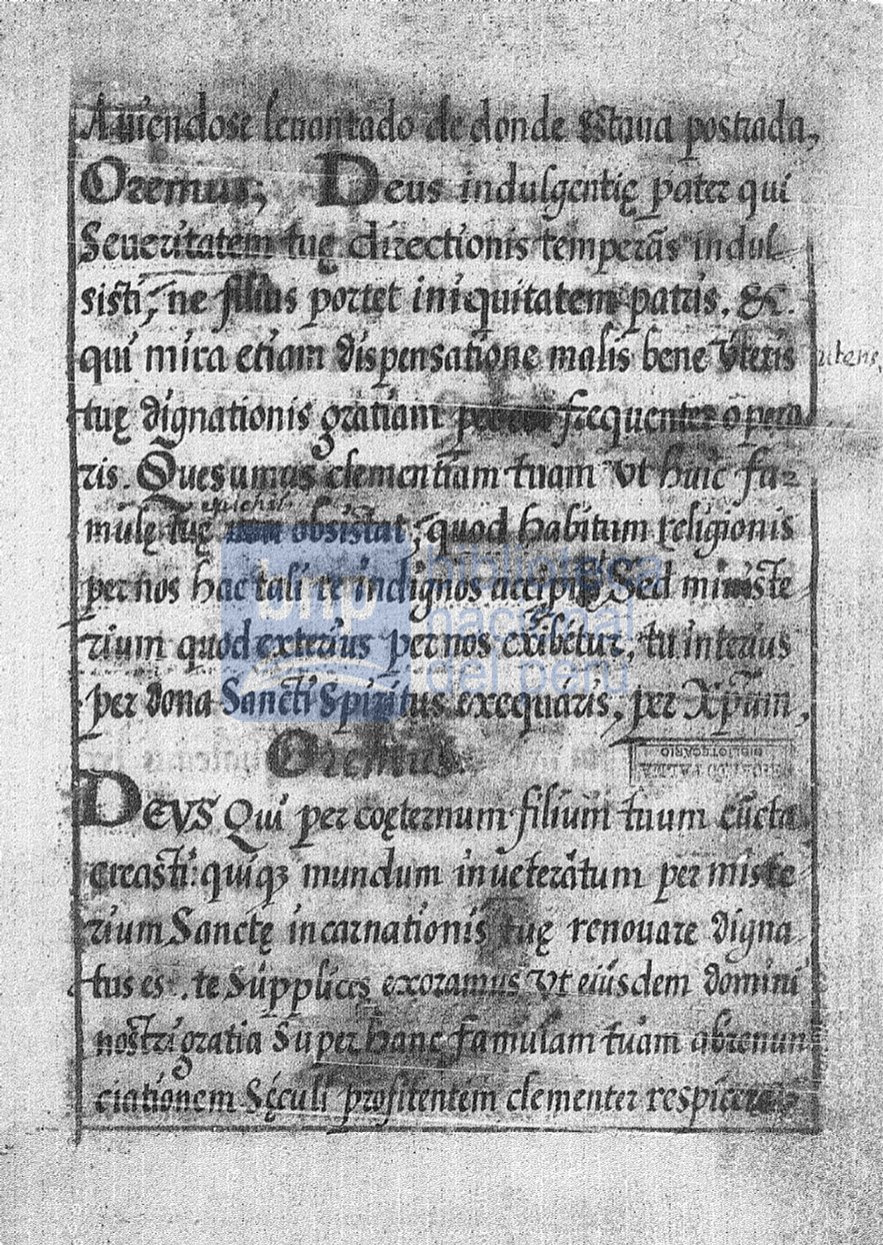 Auiendose leuantado de donde estaua postrada,
Oremus; Deus indulgentię pater qui
Seueritatem tuę directionis temperãs indul
sisti, ne filius portet iniquitatem patris. &c.
qui mira etiam dispensatione malis bene Vteris
utens
tuę dignationis gratiam per frequenter opera
ris. Quesumus clementiam tuam Vt huic fa-
mulę tuę obsistat, quod habitum religionis
per nos hac tali re indignos accipit Sed ministe
rium quod exterius per nos exibetur, tu interius
per dona Sancti Spiritus exequaris, per Xp̃um,
Oremus.
BIBLIOTECARIO
DEVS Qui per coęternum filium tuum cũcta
creasti: quiqȝ mundum inueteratum per miste
rium Sanctę incarnationis tuę renouare digna
tus es. te Supplices exoramus Vt eiusdem domini
nostri gratia Super hanc famulam tuam abrenun
ciationem Sęculi profitentem clementer respicere
bnp biblioteca
nacional
del perú